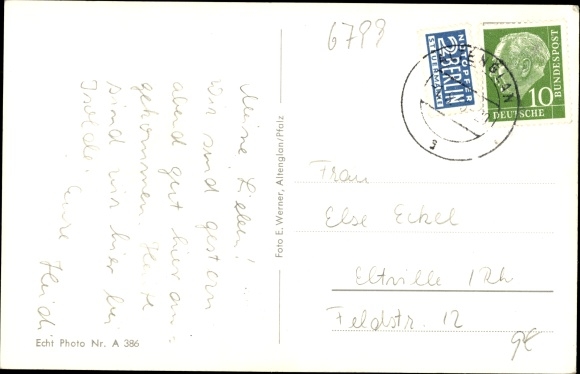 Meine Lieben!
Wir sind gestern
abend gut hier an-
gekommen. Heute
sind wir hier bei
Isolde. Eure Heidi
Echt Photo Nr. A 386
Foto E. Werner, Altenglan/Pfalz
6799
NOTOPFER
2 BERLIN
STEUERMARKE
10
DEUTSCHE BUNDESPOST
ALTENGLAN
Frau
Else Eckel
Eltville / Rh
Feldstr. 12
9€